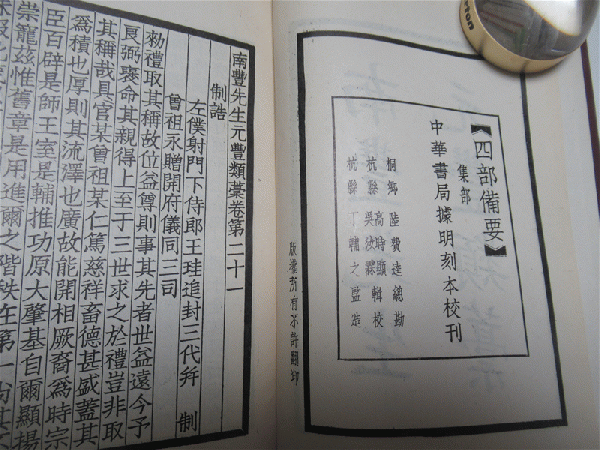 【四部備要】
集部
中華書局據明刻本校刊
桐鄉 陸費逵總勘
杭縣 高時顯 輯校
杭縣 吳汝霖
杭縣 丁輔之監造
版權所有不許翻印
南豐先生元豐類藁卷第二十一
制誥
左僕射門下侍郎王珪進封三代幷 制
曾祖永贈開府儀同三司
勑禮取其稱故位益尊則事其先者世益遠今予
良弼褒命其親得上至于三世求之於禮豈非取
其稱哉具官某曾祖某仁篤慈祥畜德甚盛蓋其
爲積也厚則其流澤也廣故能開相厥裔爲時宗
臣百辟是師王室是輔推功原大肇基自爾顯揚
崇寵茲惟舊章是用進爾之階秩在第一尚其